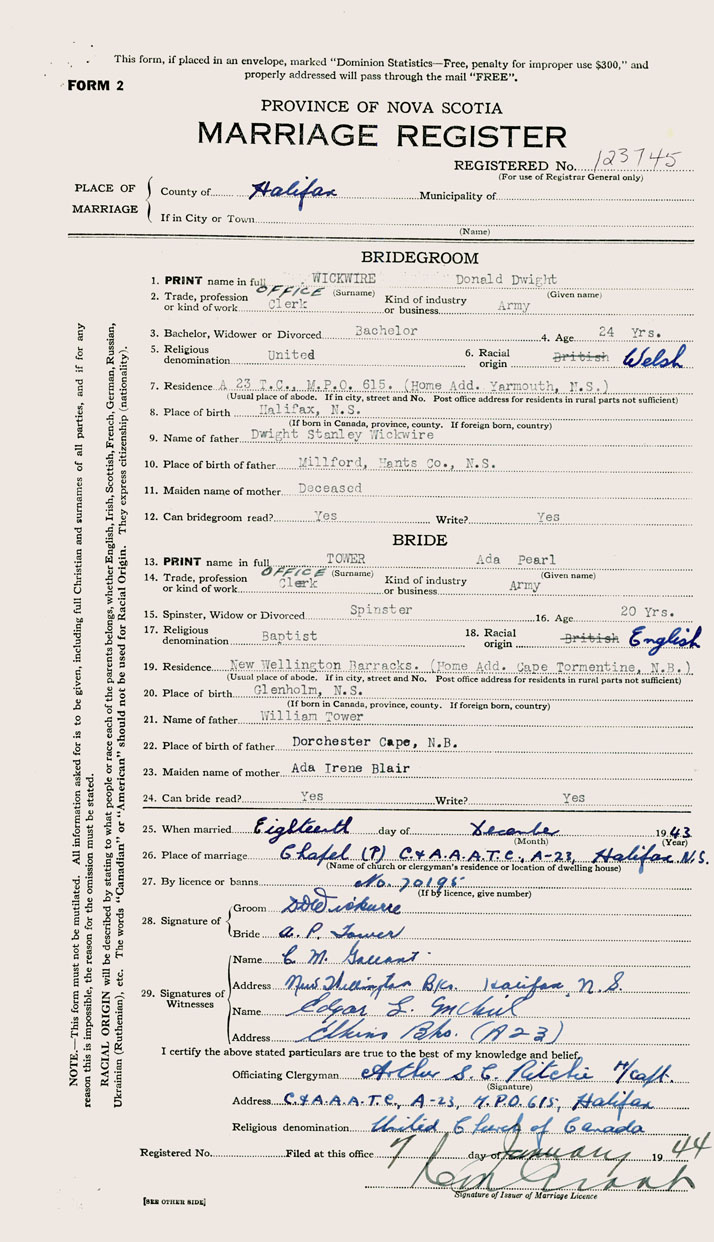 This form, if placed in an envelope, marked "Dominion Statistics—Free, penalty for improper use $300," and
properly addressed will pass through the mail "FREE".
FORM 2
PROVINCE OF NOVA SCOTIA
MARRIAGE REGISTER
REGISTERED No. 123745
(For use of Registrar General only)
PLACE OF MARRIAGE
County of Halifax Municipality of
If in City or Town
(Name)
BRIDEGROOM
1. PRINT name in full WICKWIRE Donald Dwight
(Surname) (Given name)
2. Trade, profession or kind of work OFFICE Clerk Kind of industry or business Army
3. Bachelor, Widower or Divorced Bachelor 4. Age 24 Yrs.
5. Religious denomination United 6. Racial origin British Welsh
7. Residence A 23 T.C., M.P.O. 615. (Home Add. Yarmouth, N.S.)
(Usual place of abode. If in city, street and No. Post office address for residents in rural parts not sufficient)
8. Place of birth Halifax, N.S.
(If born in Canada, province, county. If foreign born, country)
9. Name of father Dwight Stanley Wickwire
10. Place of birth of father Millford, Hants Co., N.S.
11. Maiden name of mother Deceased
12. Can bridegroom read? Yes Write? Yes
BRIDE
13. PRINT name in full TOWER Ada Pearl
(Surname) (Given name)
14. Trade, profession or kind of work OFFICE Clerk Kind of industry or business Army
15. Spinster, Widow or Divorced Spinster 16. Age 20 Yrs.
17. Religious denomination Baptist 18. Racial origin British English
19. Residence New Wellington Barracks. (Home Add. Cape Tormentine, N.B.)
(Usual place of abode. If in city, street and No. Post office address for residents in rural parts not sufficient)
20. Place of birth Glenholm, N.S.
(If born in Canada, province, county. If foreign born, country)
21. Name of father William Tower
22. Place of birth of father Dorchester Cape, N.B.
23. Maiden name of mother Ada Irene Blair
24. Can bride read? Yes Write? Yes
25. When married Eighteenth day of December 1943
(Month) (Year)
26. Place of marriage Chapel (P) C.&A.A.A.T.C., A-23, Halifax N.S.
(Name of church or clergymen's residence or location of dwelling house)
27. By licence or banns No. 70195
(If by licence, give number)
28. Signature of
Groom DDWickwire
Bride A. P. Tower
29. Signatures of Witnesses
Name C. M. Gallant
Address New Wellington Bks. Halifax, N.S.
Name Edgar L.
Address Elkins Bks. (A23)
I certify the above stated particulars are true to the best of my knowledge and belief.
Officiating Clergyman Arthur S. C. Ritchie H/Capt.
(Signature)
Address C.&A.A.A.T.C., A-23, M.P.O. 615, Halifax
Religious denomination United Church of Canada
Registered No. Filed at this office 7 day of January 1944
Signature of Issuer of Marriage Licence
[SEE OTHER SIDE]
NOTE.—This form must not be mutilated. All information asked for is to be given, including full Christian and surnames of all parties, and if for any
reason this is impossible, the reason for the omission must be stated.
RACIAL ORIGIN will be described by stating to what people or race each of the parents belongs, whether English, Irish, Scottish, French, German, Russian,
Ukrainian (Ruthenian), etc. The words "Canadian" or "American" should not be used for Racial Origin. They express citizenship (nationality).